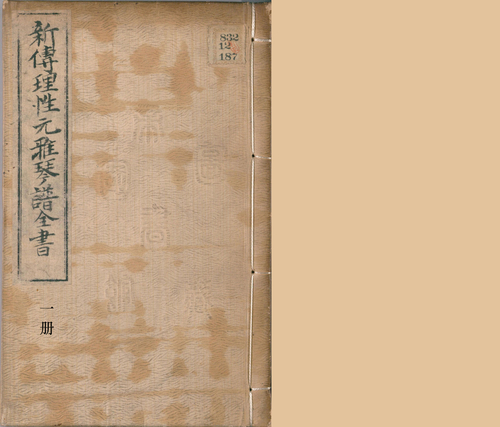 新傳理性元雅琴譜全書
一册
832
12
187